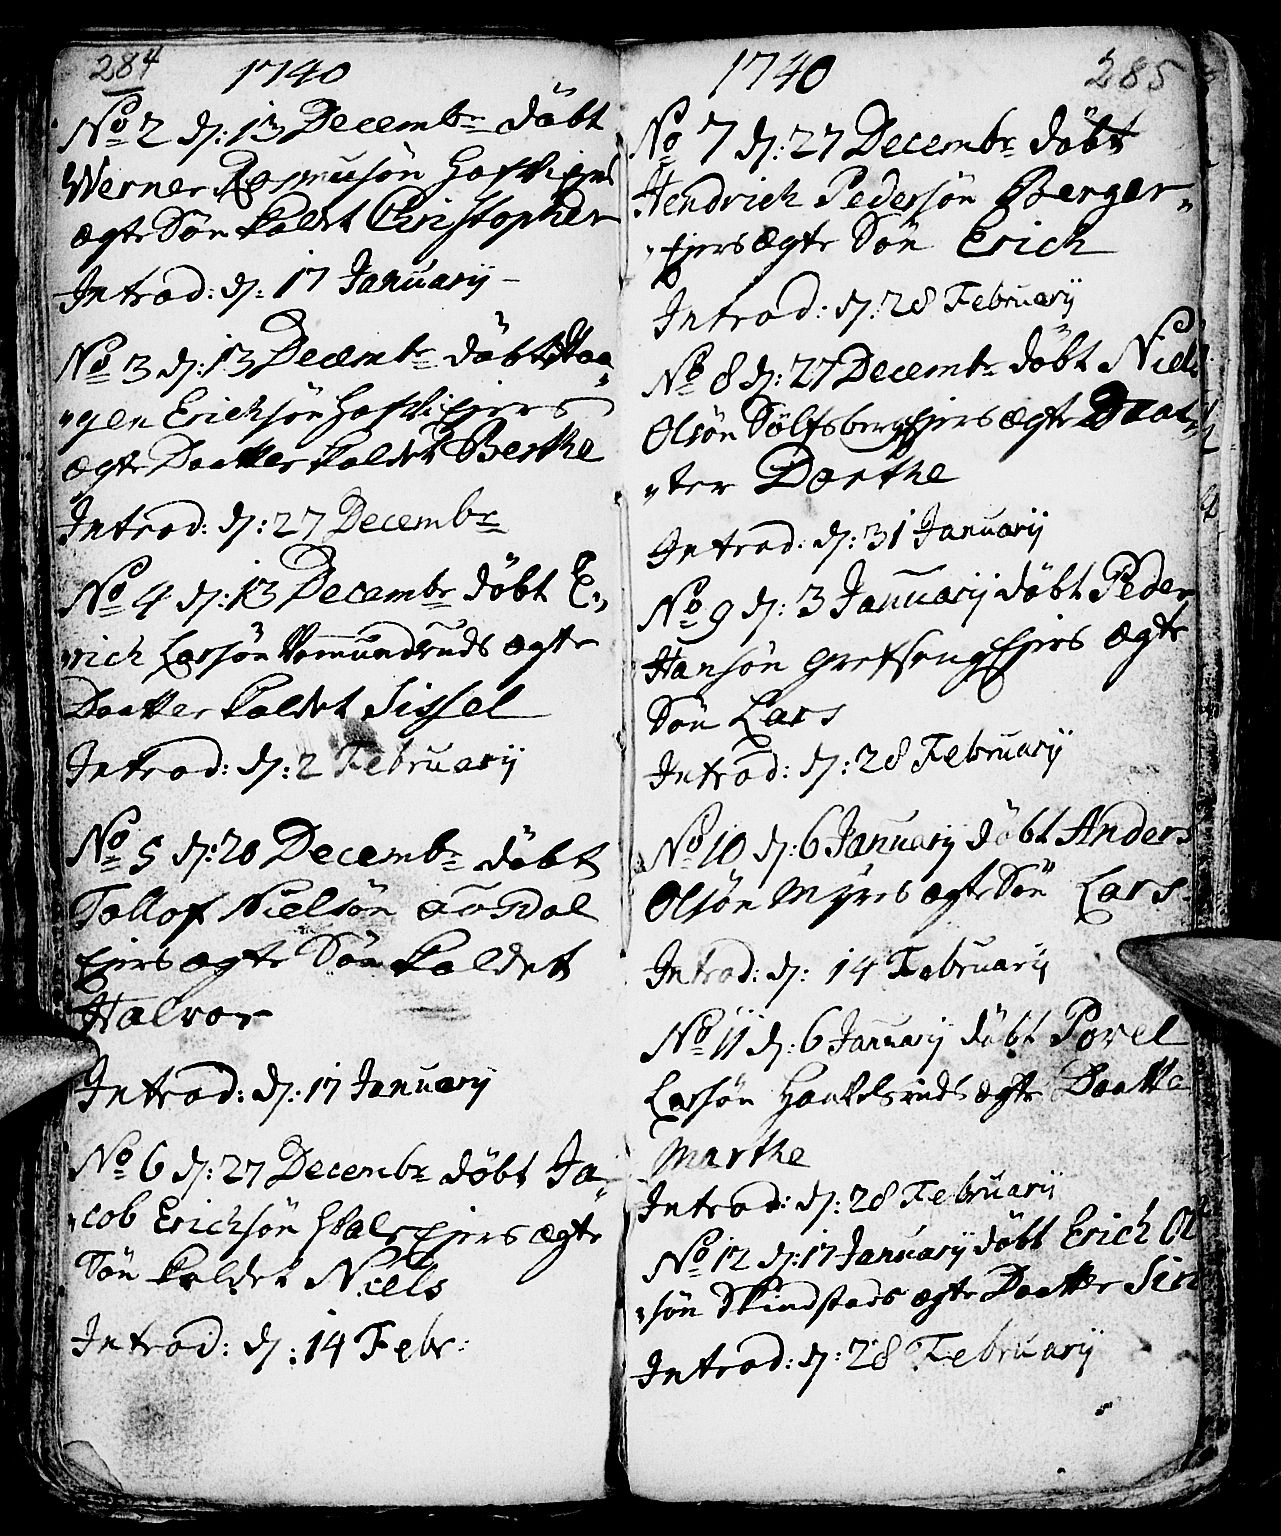 284
1740
No 2 d: 13 Decembr döbt
Werner Rasmusön Hoffs Ejers
ægte Sön kaldet Christopher
Introd: d: 17 Januarij
No 3 d: 13 Decembr döbt Haa„
„gen Erichsön Hoffs Ejers
ægte Daatter kaldet Berthe
Introd: d: 27 Decembr
No 4 d: 13 Decembr döbt E„
„rich Larsön ægte
Daatter kaldet Sissel
Introd: d: 2 Februarij
No 5 d: 20 Decembr döbt
Tollof Nielsön
Ejers ægte Sön kaldet
Halvor
Introd: d: 17 Januarij
No 6 d: 27 Decembr döbt Ja„
„cob Erichsön Ejers ægte
Sön kaldet Niels
Introd: d: 14 Febr:
1740
285
No 7 d: 27 Decembr döbt
Hendrich Pedersön Berger„
„Ejers ægte Sön Erich
Introd: d: 28 Februarij
No 8 d: 27 Decembr döbt Niels
Olsön Sölfsberg Ejers ægte Daat„
„ter Dorthe
Introd: d: 31 Januarij
No 9 d: 3 Januarij döbt Peder
Hansön Grefseng Ejers ægte
Sön Lars
Introd: d: 28 Februarij
No 10 d: 6 Januarij döbt Anders
Olsön Myres ægte Sön Lars
Introd: d: 14 Februarij
No 11 d: 6 Januarij döbt Povel
Larsön ægte Daatte
Marthe
Introd: d: 28 Februarij
No 12 d: 17 Januarij döbt Erich Ol
„sön Skindstads ægte Daatter Siri
Introd: d: 28 Februarij